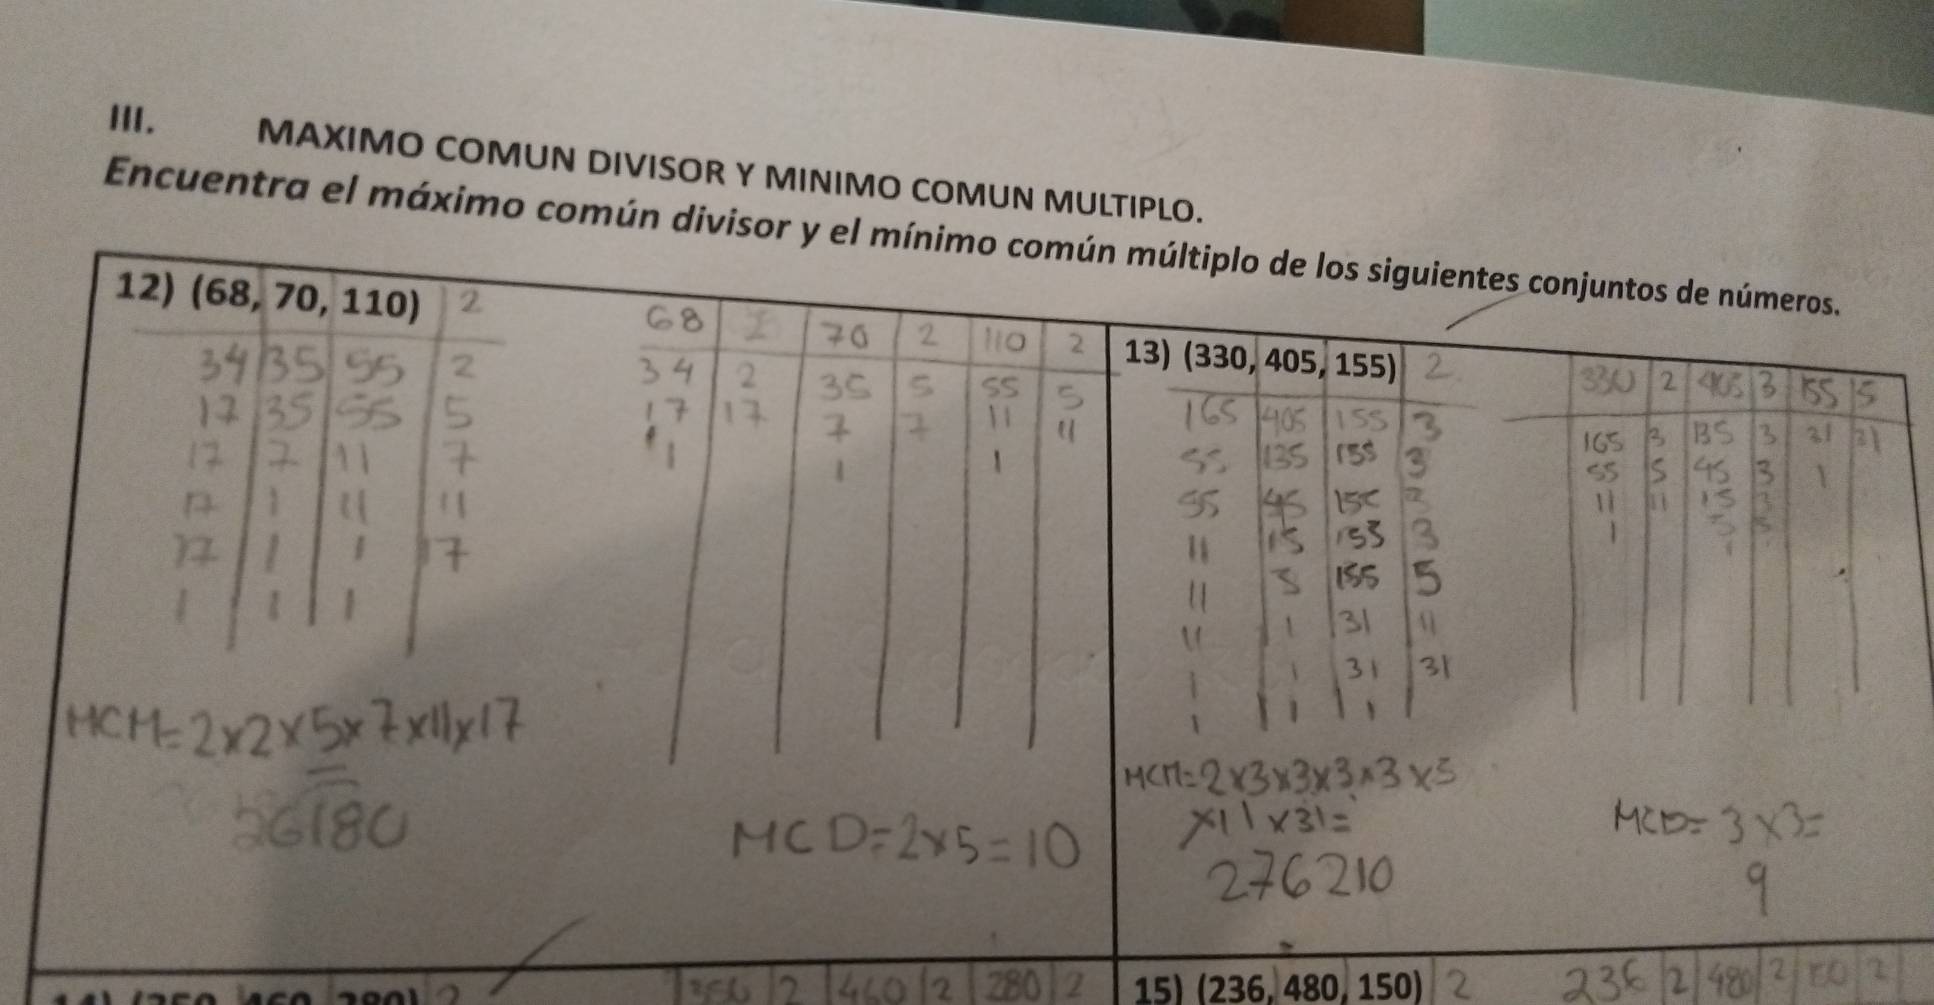 III. MAXIMO COMUN DIVISOR Y MINIMO COMUN MULTIPLO.
Encuentra el máximo común divisor y el mínimo común múltiplo de los siguientes conjuntos de números.
12) (68, 70, 110) 2
34 35 55 2
17 35 55 5
17 7 11 7
17 1 11 11
17 1 1 17
1 1 1
MCM=2x2x5x7x11x17
26180
68 2 70 2 110 2
34 2 35 5 55 5
17 17 7 7 11 11
1 1 1
MCD=2x5=10
13) (330, 405, 155) 2
165 405 155 3
55 135 155 3
55 45 155 3
11 15 155 3
11 5 155 5
11 1 31 11
1 1 31 31
1 1 1
MCM=2x3x3x3x3x5
x11x31=
276210
330 2 405 3 155 5
165 3 135 3 31 31
55 5 45 3 1
11 11 15 3
1 5 5
MCD=3x3=
9
2 460 2 280 2
15) (236, 480, 150) 2
236 2 480 2 2